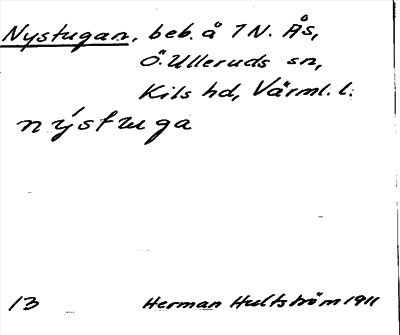 Nystugan, beb. å 7 N. Ås,
Ö. Ulleruds sn,
Kils hd, Värml. l.
nýstuga
13 Herman Hultström 1911